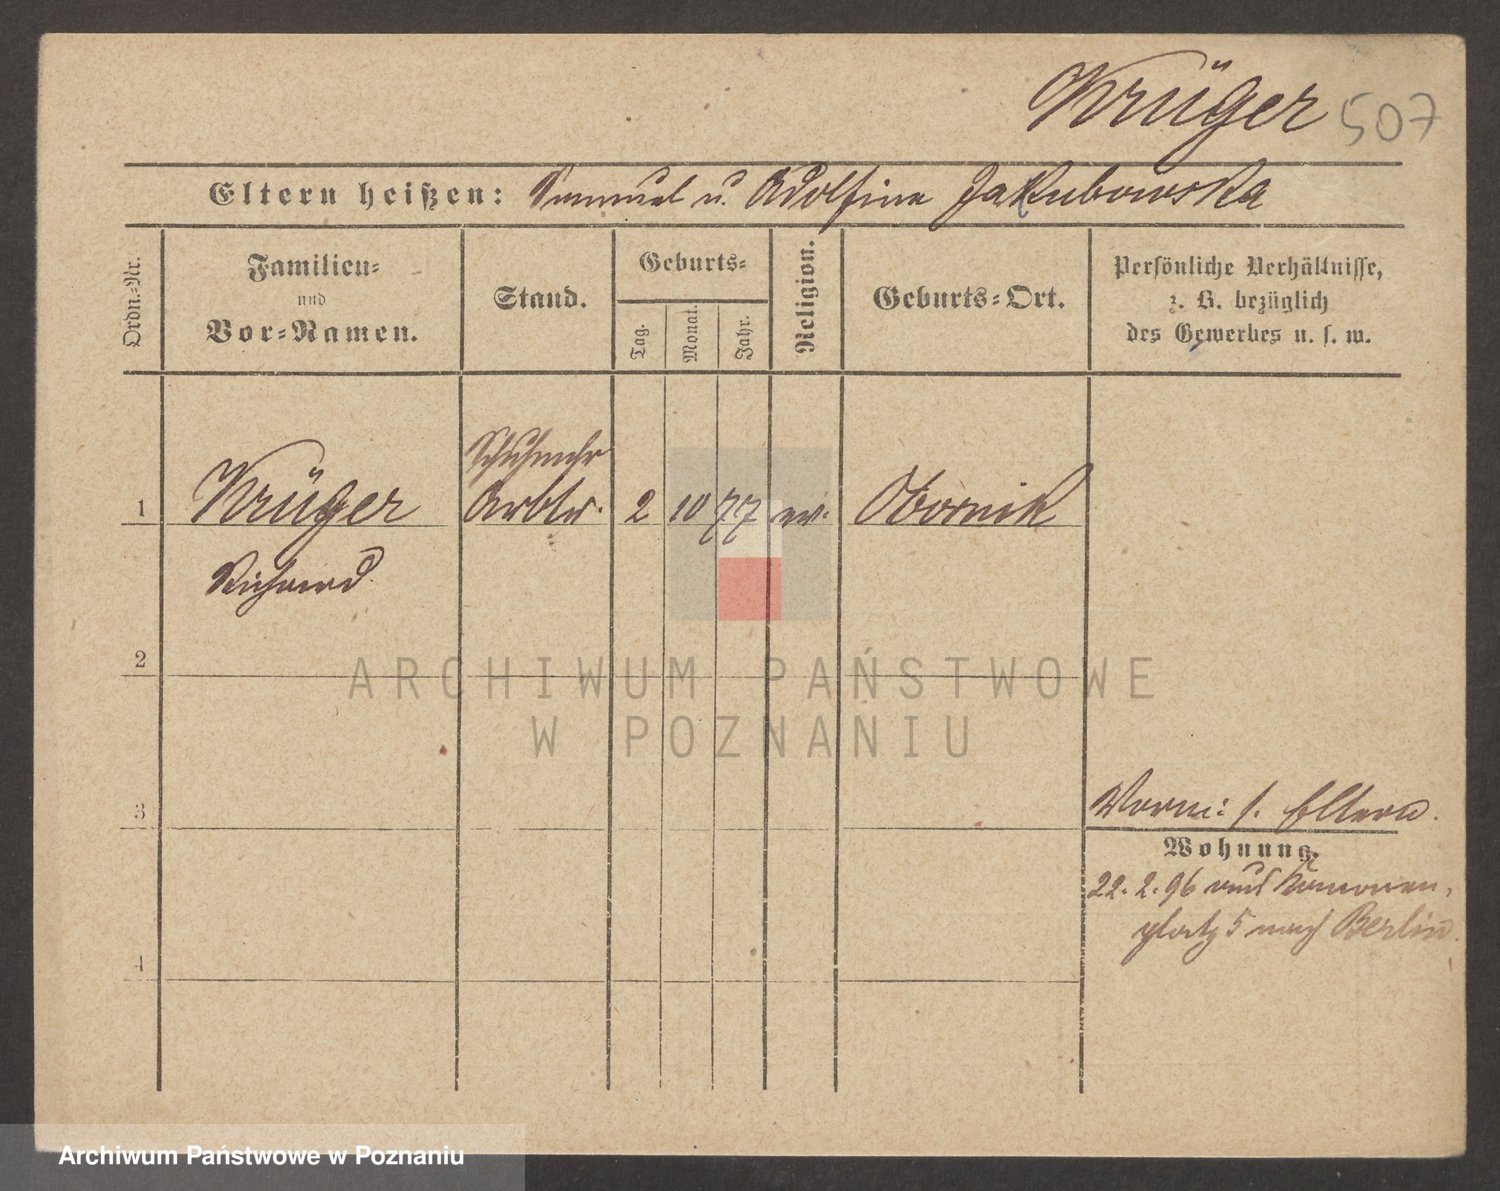 Krüger 507
Eltern heißen: Samuel u. Adolfine Jakubowska
Ordn.-Nr.
Familien-
und
Vor-Namen.
Stand.
Geburts-
Tag.
Monat.
Jahr.
Religion.
Geburts-Ort.
Persönliche Verhältnisse,
z. B. bezüglich
des Gewerbes u. s. w.
Schuhmchr
1 Krüger Arbtr. 2 10 77 ev. Obornik
Richard.
2
ARCHIWUM PAŃSTWOWE
W POZNANIU
3
Vorm: s. Eltern.
Wohnung.
22. 2. 96 aus
platz 5 nach Berlin.
4
Archiwum Państwowe w Poznaniu